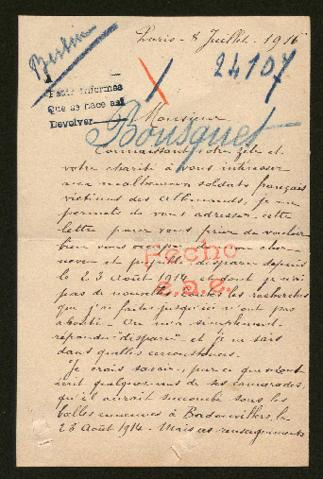 Paris - 8 Juillet - 1916
Berlin
24107
Pedir informes
Que se hace asi
Devolver
Monsieur
Bousquet
Connaissant votre zèle et
votre charité à vous intéresser
aux malheureux soldats français
victimes des Allemands, je me
permets de vous adresser cette
lettre pour vous prier de vouloir
bien vous occuper de mon cher
neveu et disparu depuis
le 23 Août 1914 et dont je n'ai
pas de nouvelles. Toutes les recherches
que j'ai faites jusqu'ici n'ont pas
abouti - On m'a simplement
répondu "disparu" et je ne sais
dans quelles circonstances.
Fecho
Je crois savoir, par ce que
quelques-uns de ses camarades,
qu'il aurait succombé sous les
balles ennemies à le
23 Août 1914. Mais ces renseignements